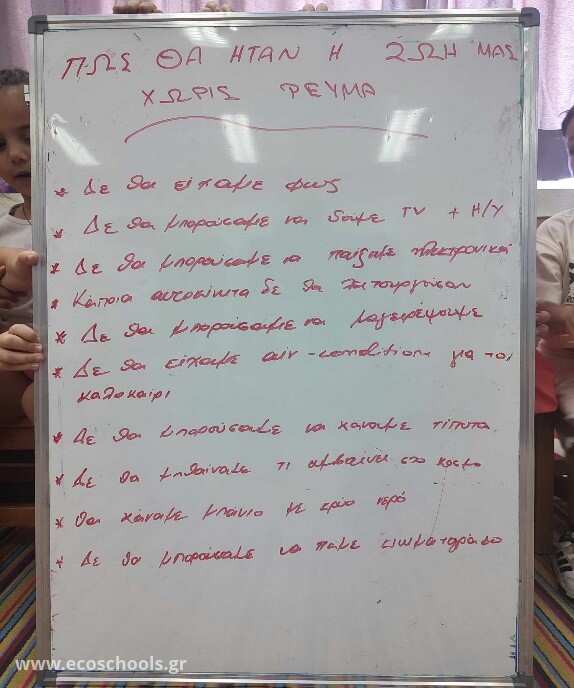 ΠΩΣ ΘΑ ΗΤΑΝ Η ΖΩΗ ΜΑΣ
ΧΩΡΙΣ ΡΕΥΜΑ
* Δε θα είχαμε φως
* Δε θα μπορούσαμε να δούμε TV + Η/Υ
* Δε θα μπορούσαμε να παίζαμε ηλεκτρονικά
* Κάποια αυτοκίνητα δε θα λειτουργούσαν
* Δε θα μπορούσαμε να μαγειρέψουμε
* Δε θα είχαμε air-condition για το
καλοκαίρι
* Δε θα μπορούσαμε να κάναμε τίποτα
* Δε θα μαθαίναμε τι συμβαίνει στο κόσμο
* Θα κάναμε μπάνιο με κρύο νερό
* Δε θα μπορούσαμε να πάμε κινηματογράφο
www.ecoschools.gr